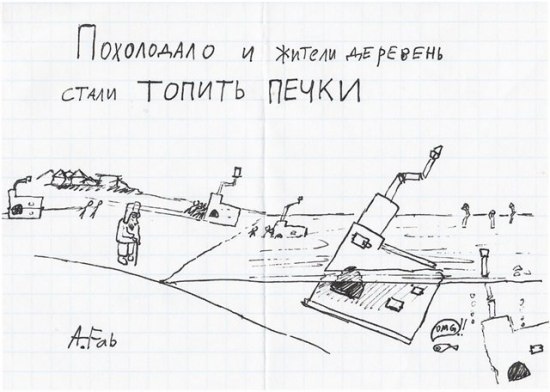 Похолодало и жители деревень
стали топить печки
OMG!!
A.Fab